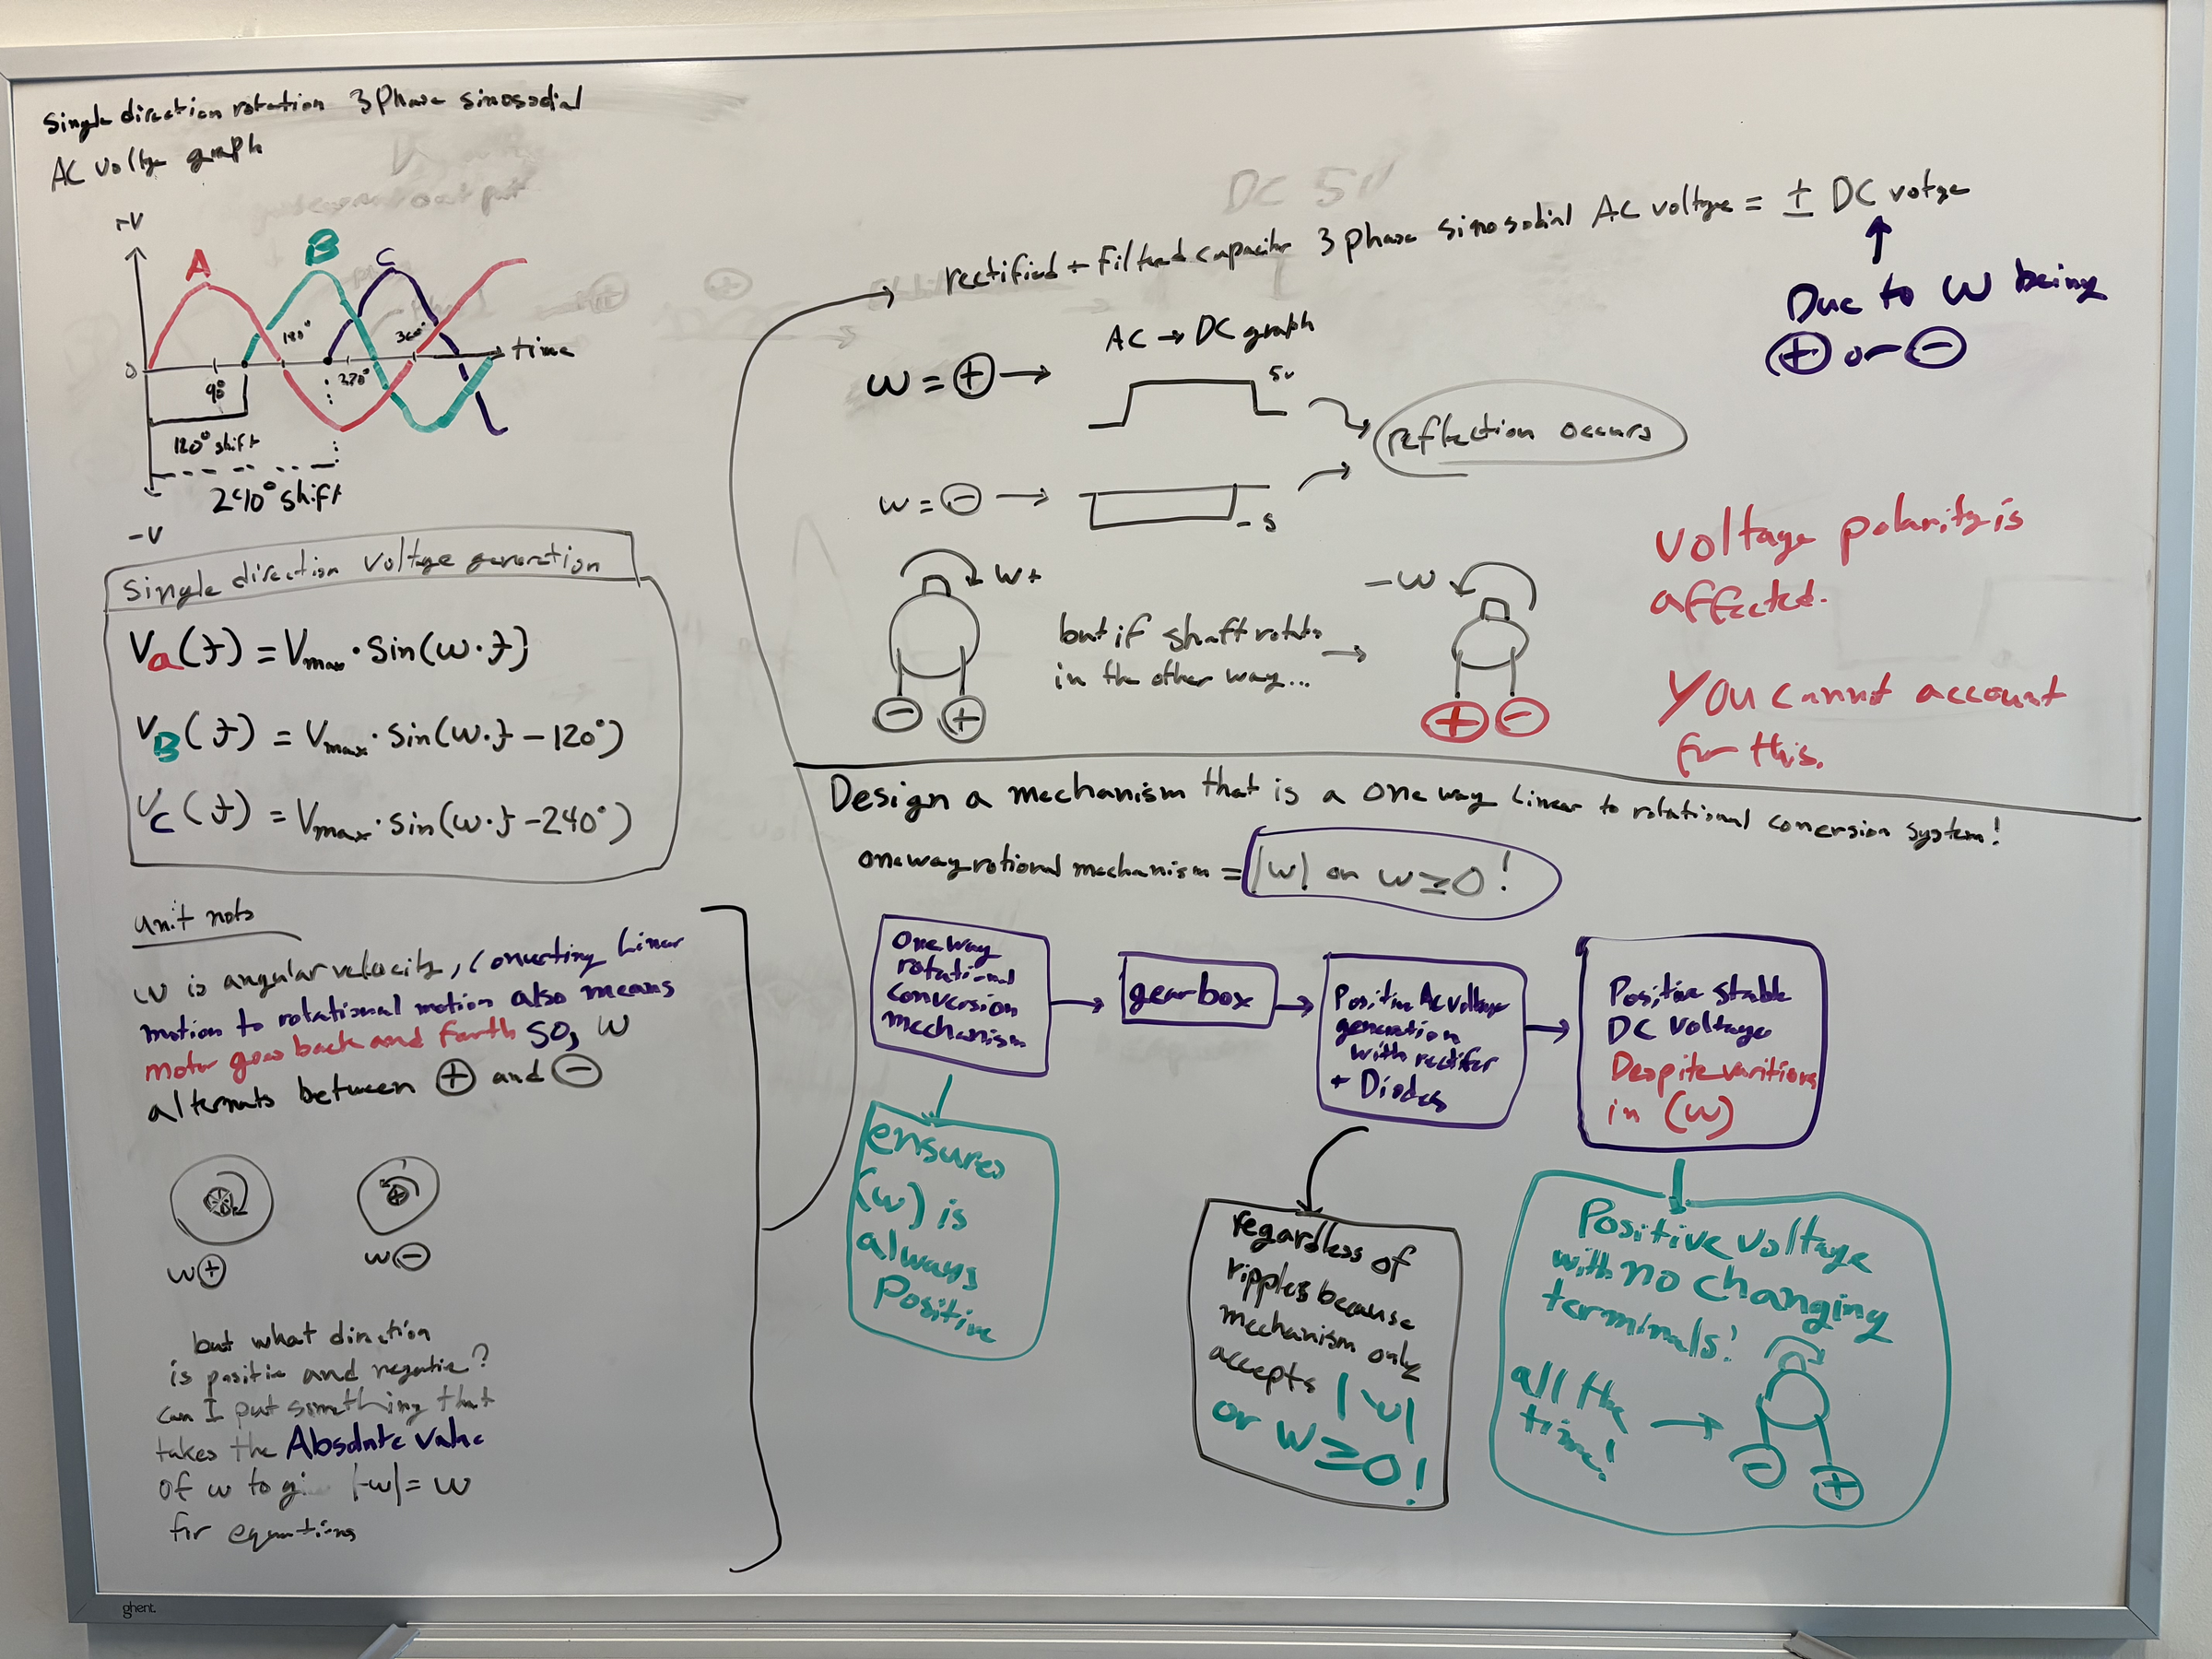 Single direction rotation 3Phase sinosodial
AC voltge graph
+V
A
B
C
180°
360°
time
0
90°
270°
120° shift
240° shift
-V
Single direction voltage generation
Va(t) = Vmax · Sin(w·t)
VB(t) = Vmax · Sin(w·t - 120°)
Vc(t) = Vmax · Sin(w·t - 240°)
unit nots
w is angular velocity, Converting Linear
motion to rotational motion also means
motor goes back and forth SO, W
alternats between + and -
w+
w-
but what direction
is positie and negatie?
can I put something that
takes the Absolute value
of w to |-w| = w
for equations
DC 5V
rectified + Filtered capacitor 3 phase sinosodial AC voltage = ± DC votge
Due to W being
+ or -
AC → DC graph
w = + →
5v
reflection occurs
w = - →
- 5
w+
-w
but if shaft rotats
in the other way...
- +
+ -
Voltage polarity is
affected.
You cannot account
for this.
Design a mechanism that is a one way Linear to rotational conersion system!
one way rotional mechanism = |w| or w ≥ 0!
One way
rotational
conversion
mechanism
gearbox
Positive AC voltage
generation
with rectifer
+ Diodes
Positive stable
DC voltage
Despite varitions
in (w)
ensures
(w) is
always
Positive
regardless of
ripples because
mechanism only
accepts |w|
or w ≥ 0!
Positive voltage
with no changing
terminals!
all the
time!
- +
ghent.